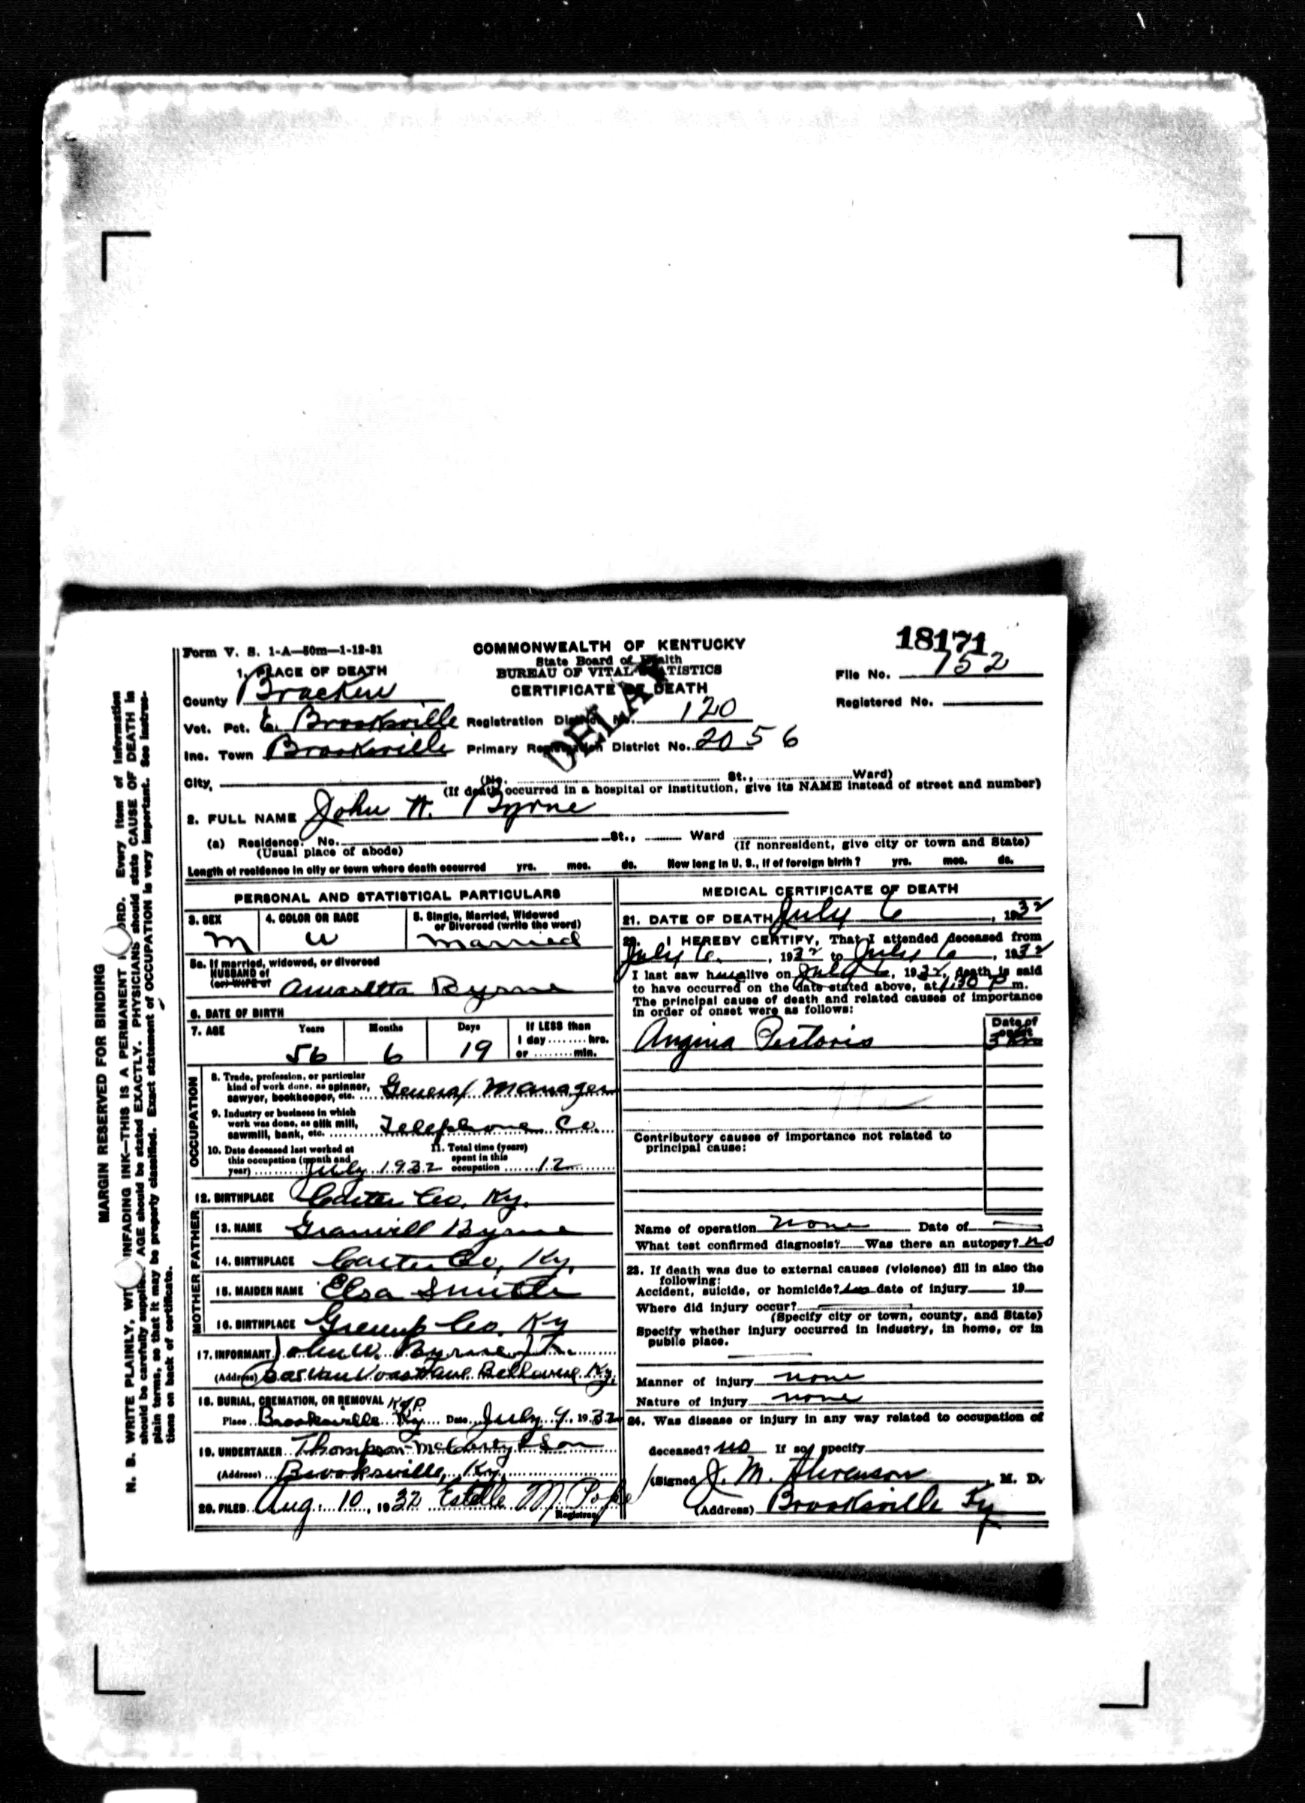 Form V. S. 1-A—50m—1-12-31
COMMONWEALTH OF KENTUCKY
State Board of Health
BUREAU OF VITAL STATISTICS
CERTIFICATE OF DEATH
DELAY
18171
File No. 752
Registered No.
1. PLACE OF DEATH
County Bracken
Vot. Pct. E. Brooksville Registration District No. 120
Inc. Town Brooksville Primary Registration District No. 2056
City, (No. St., Ward)
(If death occurred in a hospital or institution, give its NAME instead of street and number)
2. FULL NAME John W. Byrne
(a) Residence. No. St., Ward
(Usual place of abode) (If nonresident, give city or town and State)
Length of residence in city or town where death occurred yrs. mos. ds. How long in U. S., if of foreign birth? yrs. mos. ds.
PERSONAL AND STATISTICAL PARTICULARS
3. SEX 4. COLOR OR RACE 5. Single, Married, Widowed
or Divorced (write the word)
M W Married
5a. If married, widowed, or divorced
HUSBAND of
(or) WIFE of Byrne
6. DATE OF BIRTH
7. AGE Years Months Days If LESS than
1 day hrs.
56 6 19 or min.
OCCUPATION
8. Trade, profession, or particular
kind of work done, as spinner,
sawyer, bookkeeper, etc. General Manager
9. Industry or business in which
work was done, as silk mill,
sawmill, bank, etc. Telephone Co.
10. Date deceased last worked at
this occupation (month and
year) July 1932
11. Total time (years)
spent in this
occupation 12
12. BIRTHPLACE Carter Co. Ky.
FATHER
13. NAME Granvill Byrne
14. BIRTHPLACE Carter Co, Ky.
MOTHER
15. MAIDEN NAME Elsa Smith
16. BIRTHPLACE Greenup Co. Ky
17. INFORMANT John W. Byrne Jr.
(Address) Bellevue Ky.
18. BURIAL, CREMATION, OR REMOVAL
Place Brooksville Ky Date July 9, 1932
19. UNDERTAKER Thompson & Son
(Address) Brooksville, Ky.
20. FILED Aug. 10, 1932 Estelle M. Pope
Registrar
MEDICAL CERTIFICATE OF DEATH
21. DATE OF DEATH July 6, 1932
22. I HEREBY CERTIFY, That I attended deceased from
July 6, 1932 to July 6, 1932
I last saw him alive on July 6, 1932, death is said
to have occurred on the date stated above, at 1:30 P m.
The principal cause of death and related causes of importance
in order of onset were as follows:
Date of
onset
Angina Pectoris
Contributory causes of importance not related to
principal cause:
Name of operation none Date of
What test confirmed diagnosis? Was there an autopsy? no
23. If death was due to external causes (violence) fill in also the
following:
Accident, suicide, or homicide? date of injury 19
Where did injury occur?
(Specify city or town, county, and State)
Specify whether injury occurred in industry, in home, or in
public place.
Manner of injury none
Nature of injury none
24. Was disease or injury in any way related to occupation of
deceased? no If so, specify
(Signed) J. M. Stevenson, M. D.
(Address) Brooksville Ky
MARGIN RESERVED FOR BINDING
N. B. WRITE PLAINLY, WITH UNFADING INK—THIS IS A PERMANENT RECORD. Every item of information
should be carefully supplied. AGE should be stated EXACTLY. PHYSICIANS should state CAUSE OF DEATH in
plain terms, so that it may be properly classified. Exact statement of OCCUPATION is very important. See instruc-
tions on back of certificate.